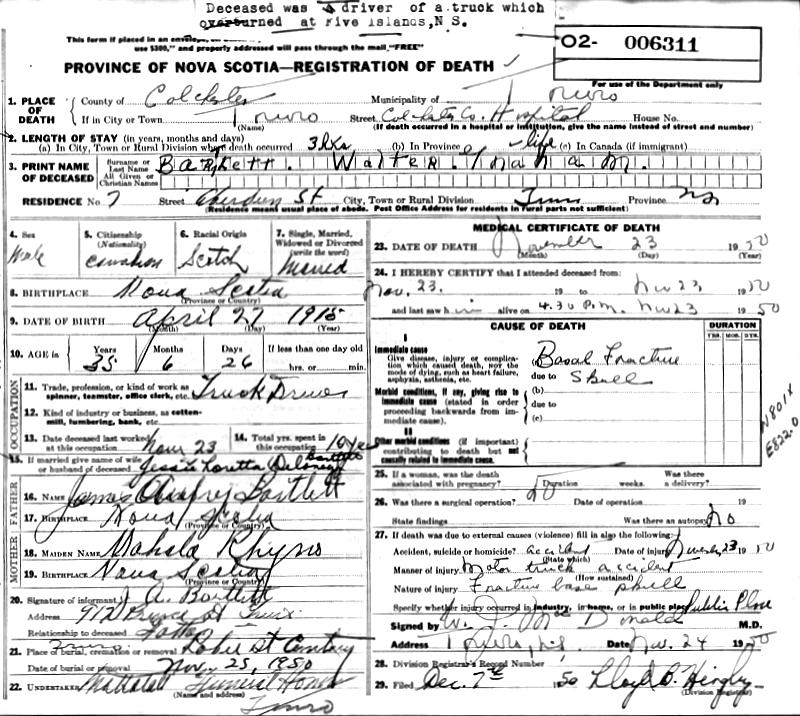 Deceased was driver of a truck which
overturned at Five Islands, N S.
This form if placed in an envelope,
use $300," and properly addressed will pass through the mail, "FREE"
O2- 006311
PROVINCE OF NOVA SCOTIA—REGISTRATION OF DEATH
For use of the Department only
1. PLACE OF DEATH County of Colchester Municipality of Truro
If in City or Town Truro Street Colchester Co. Hospital House No.
(Name) (If death occurred in a hospital or institution, give the name instead of street and number)
2. LENGTH OF STAY (in years, months and days)
(a) In City, Town or Rural Division where death occurred 3 (b) In Province life (c) In Canada (if immigrant)
3. PRINT NAME OF DECEASED Surname or Last Name All Given or Christian Names Bartlett. Walter. M.
RESIDENCE No. 7 Street Aberdeen St City, Town or Rural Division Truro Province NS
(Residence means usual place of abode. Post Office Address for residents in rural parts not sufficient)
4. Sex Male
5. Citizenship (Nationality) Canadian
6. Racial Origin Scotch
7. Single, Married, Widowed or Divorced (write the word) Married
8. BIRTHPLACE Nova Scotia
(Province or Country)
9. DATE OF BIRTH April 27 1915
(Month) (Day) (Year)
10. AGE in Years 35 Months 6 Days 26 If less than one day old hrs. or min.
OCCUPATION
11. Trade, profession, or kind of work as spinner, teamster, office clerk, etc. Truck Driver
12. Kind of industry or business, as cotton-mill, lumbering, bank, etc.
13. Date deceased last worked at this occupation Nov 23
14. Total yrs. spent in this occupation 10 yrs
15. If married give name of wife or husband of deceased Jessie Loretta Deloney Bartlett
FATHER
16. Name James Bartlett
17. Birthplace Nova Scotia
(Province or Country)
MOTHER
18. Maiden Name Mahala Rhyno
19. Birthplace Nova Scotia
(Province or Country)
20. Signature of informant J A. Bartlett
Address 912 Prince St Truro
Relationship to deceased Father
21. Place of burial, cremation or removal Truro Robie St Cemetery
Date of burial or removal Nov. 25, 1950
22. UNDERTAKER Mattatall Funeral Home
(Name and address)
Truro
MEDICAL CERTIFICATE OF DEATH
23. DATE OF DEATH November 23 1950
(Month) (Day) (Year)
24. I HEREBY CERTIFY that I attended deceased from:
Nov. 23. 19 to Nov 23 1950
and last saw him alive on 4.30 P.M. Nov 23 1950
CAUSE OF DEATH DURATION
YRS. MOS. DYS.
I
Immediate cause
Give disease, injury or complication which caused death, not the mode of dying, such as heart failure, asphyxia, asthenia, etc.
Basal Fracture
due to Skull
Morbid conditions, if any, giving rise to immediate cause (stated in order proceeding backwards from immediate cause).
(b)
due to
(c)
II
Other morbid conditions (if important) contributing to death but not causally related to immediate cause.
N801X
E822.0
25. If a woman, was the death associated with pregnancy? Duration weeks. Was there a delivery?
26. Was there a surgical operation? No Date of operation 19
State findings Was there an autopsy? No
27. If death was due to external causes (violence) fill in also the following:
Accident, suicide or homicide? accident Date of injury November 23 1950
(State which)
Manner of injury Motor truck accident
(How sustained)
Nature of injury Fracture base skull
Specify whether injury occurred in industry, in home, or in public place Public Place
Signed by W. J. MacDonald M.D.
Address Truro, N.S. Date Nov. 24 1950
28. Division Registrar's Record Number
29. Filed Dec. 7th 50 Lloyd
(Division Registrar)